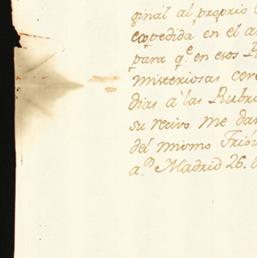 ginal al proprio
expedida en el a
para qe. en esos R
misteriosas cere
dias a las Rubri
su recivo me dar
del mismo Tribu
as. Madrid 26. d